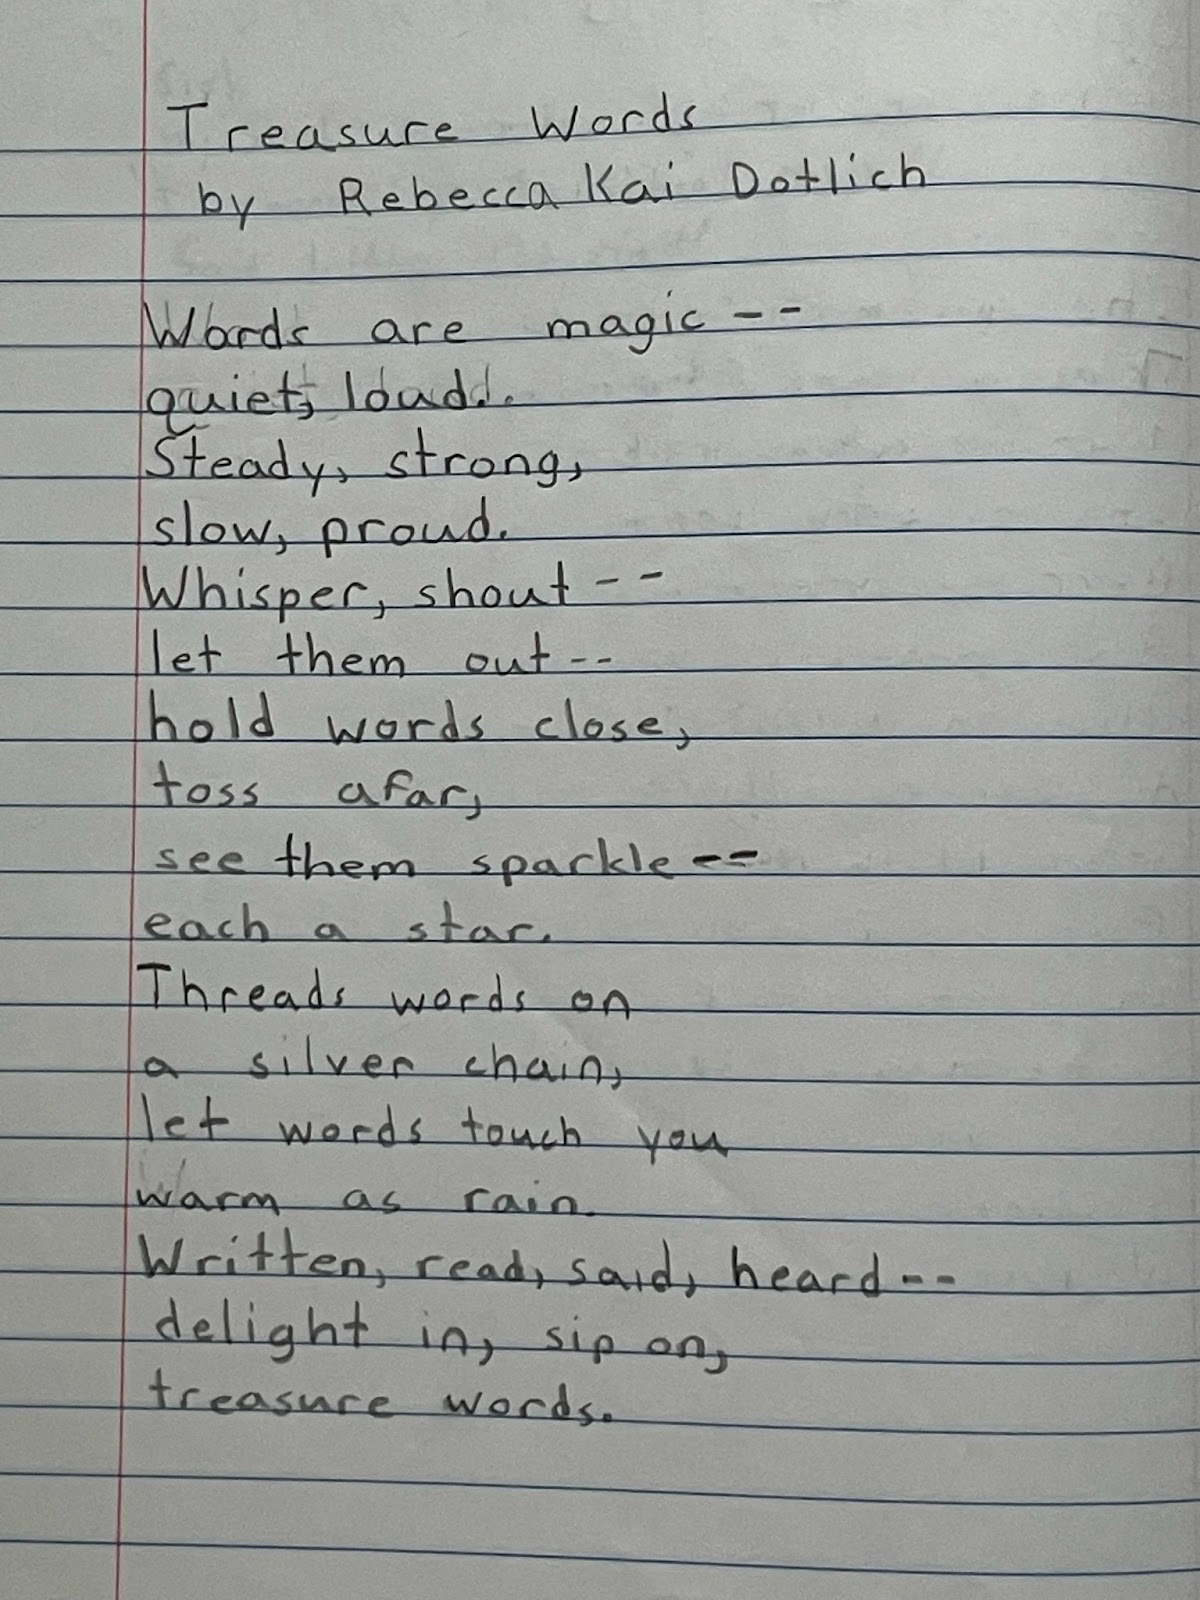 Treasure Words
by Rebecca Kai Dotlich
Words are magic --
quiet, loud.
Steady, strong,
slow, proud.
Whisper, shout --
let them out --
hold words close,
toss afar,
see them sparkle --
each a star.
Threads words on
a silver chain,
let words touch you
warm as rain.
Written, read, said, heard --
delight in, sip on,
treasure words.